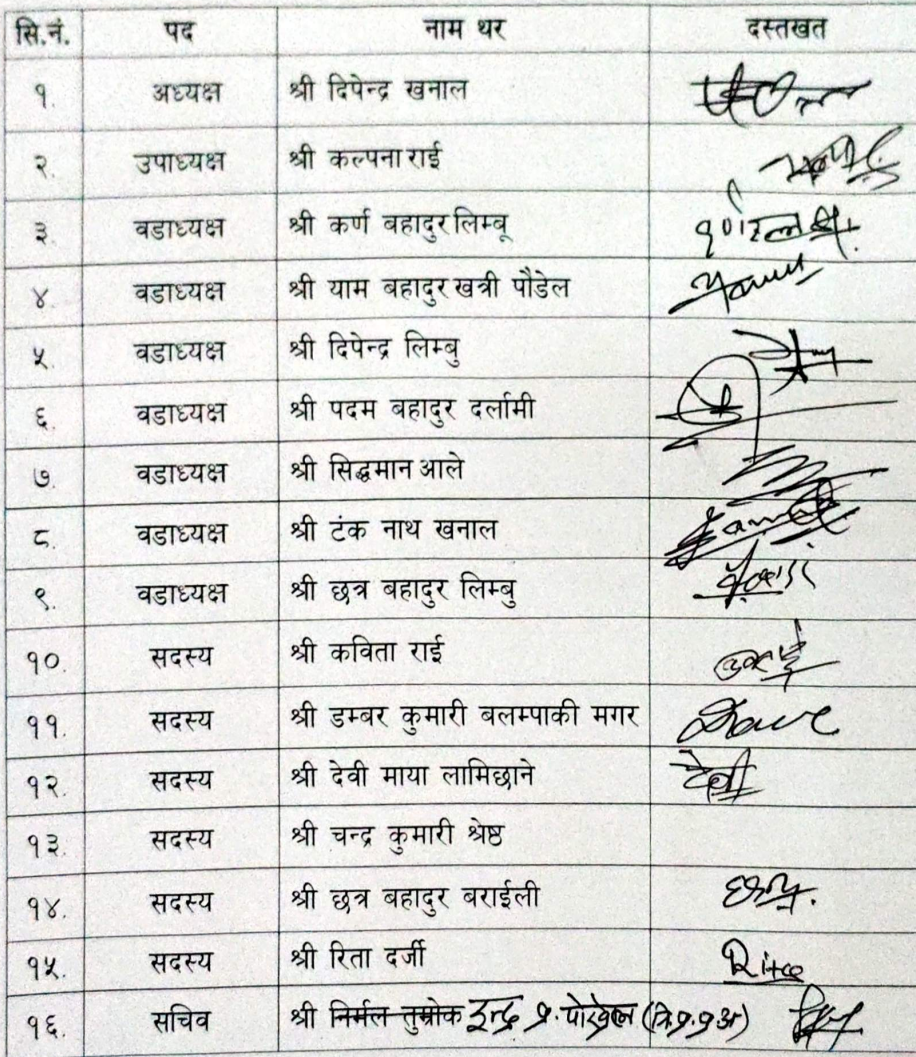 सि.नं. पद नाम थर दस्तखत
१. अध्यक्ष श्री दिपेन्द्र खनाल
२. उपाध्यक्ष श्री कल्पना राई
३. वडाध्यक्ष श्री कर्ण बहादुर लिम्बू
४. वडाध्यक्ष श्री याम बहादुर खत्री पौडेल
५. वडाध्यक्ष श्री दिपेन्द्र लिम्बु
६. वडाध्यक्ष श्री पदम बहादुर दर्लामी
७. वडाध्यक्ष श्री सिद्धमान आले
८. वडाध्यक्ष श्री टंक नाथ खनाल
९. वडाध्यक्ष श्री छत्र बहादुर लिम्बु
१०. सदस्य श्री कविता राई
११. सदस्य श्री डम्बर कुमारी बलम्पाकी मगर
१२. सदस्य श्री देवी माया लामिछाने देवी
१३. सदस्य श्री चन्द्र कुमारी श्रेष्ठ
१४. सदस्य श्री छत्र बहादुर बराईली
१५. सदस्य श्री रिता दर्जी Rita
१६. सचिव श्री निर्मल तुम्रोक इन्द्र प्र. पोख्रेल (नि.प्र.प्र.अ)